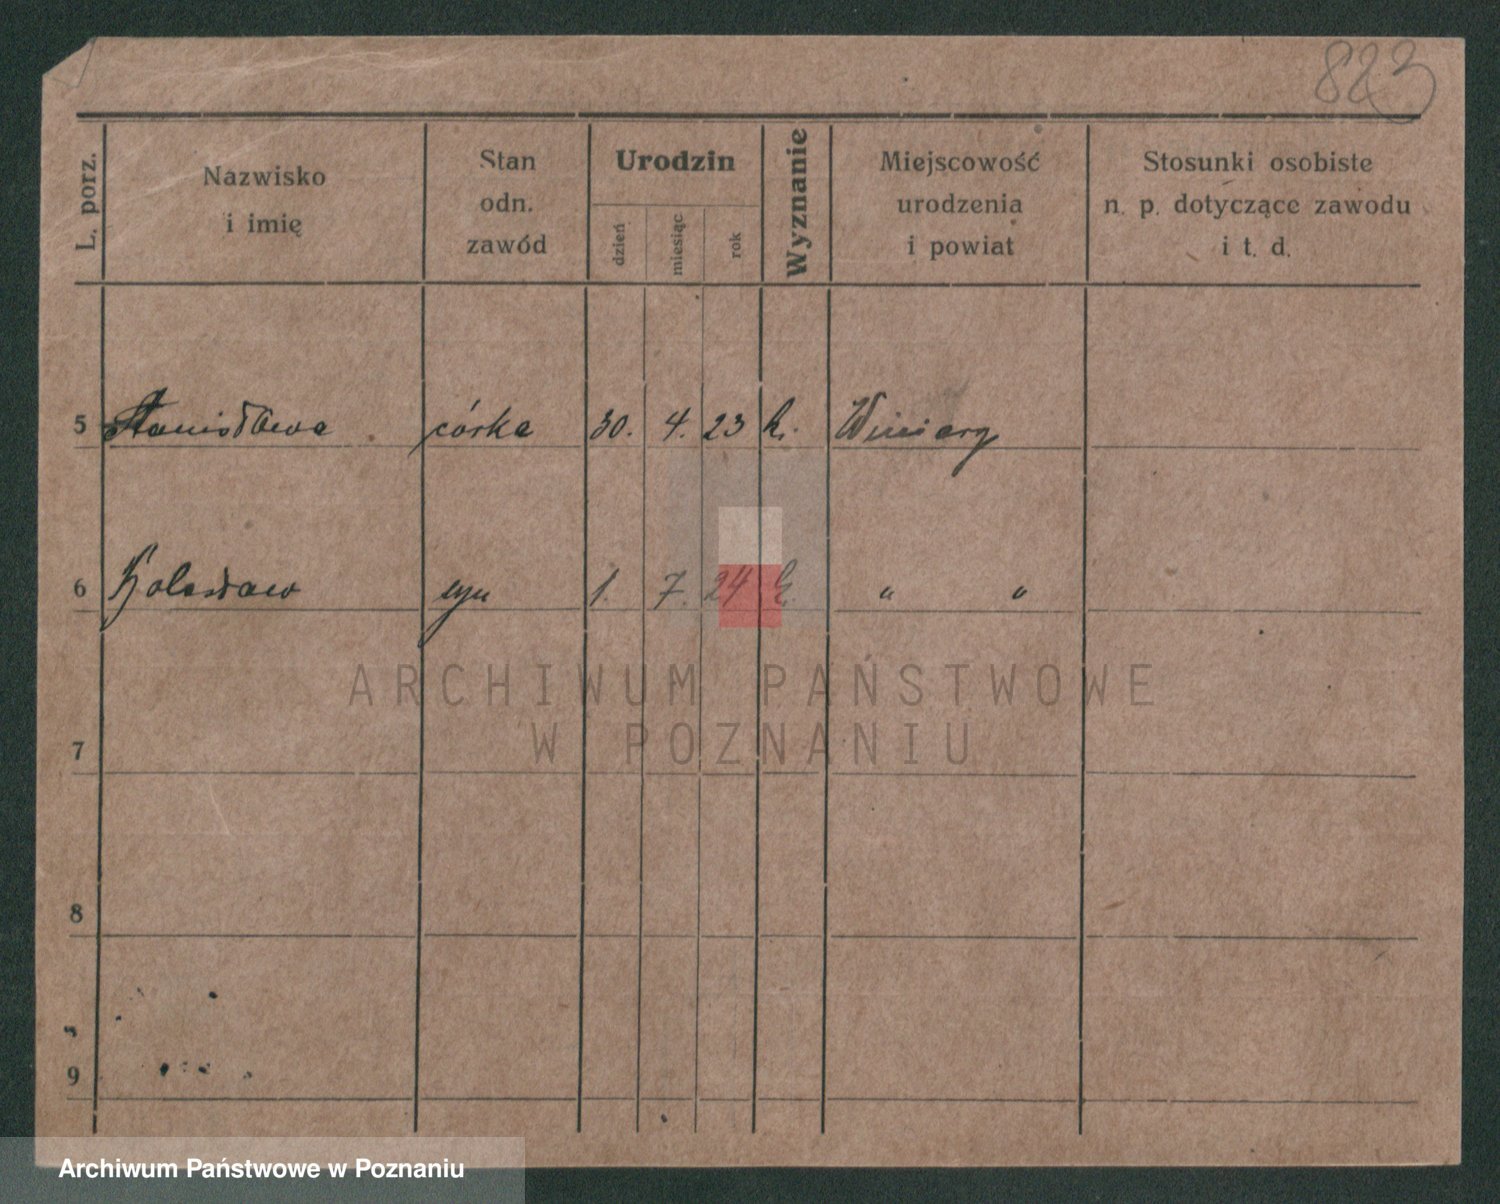 823
L. porz.
Nazwisko
i imię
Stan
odn.
zawód
Urodzin
dzień
miesiąc
rok
Wyznanie
Miejscowość
urodzenia
i powiat
Stosunki osobiste
n. p. dotyczące zawodu
i t. d.
5 Stanisława córka 30. 4. 23 k. Winiary
6 Bolesław syn 1. 7. 24 k. " "
ARCHIWUM PAŃSTWOWE
W POZNANIU
7
8
9
Archiwum Państwowe w Poznaniu